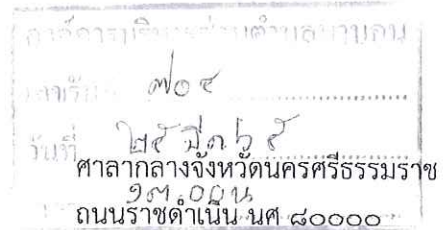 องค์การบริหารส่วนตำบล
เลขรับ ๗๐๔
วันที่ ๒๕
ศาลากลางจังหวัดนครศรีธรรมราช
๑๓.๐๐ น
ถนนราชดำเนิน นศ ๘๐๐๐๐